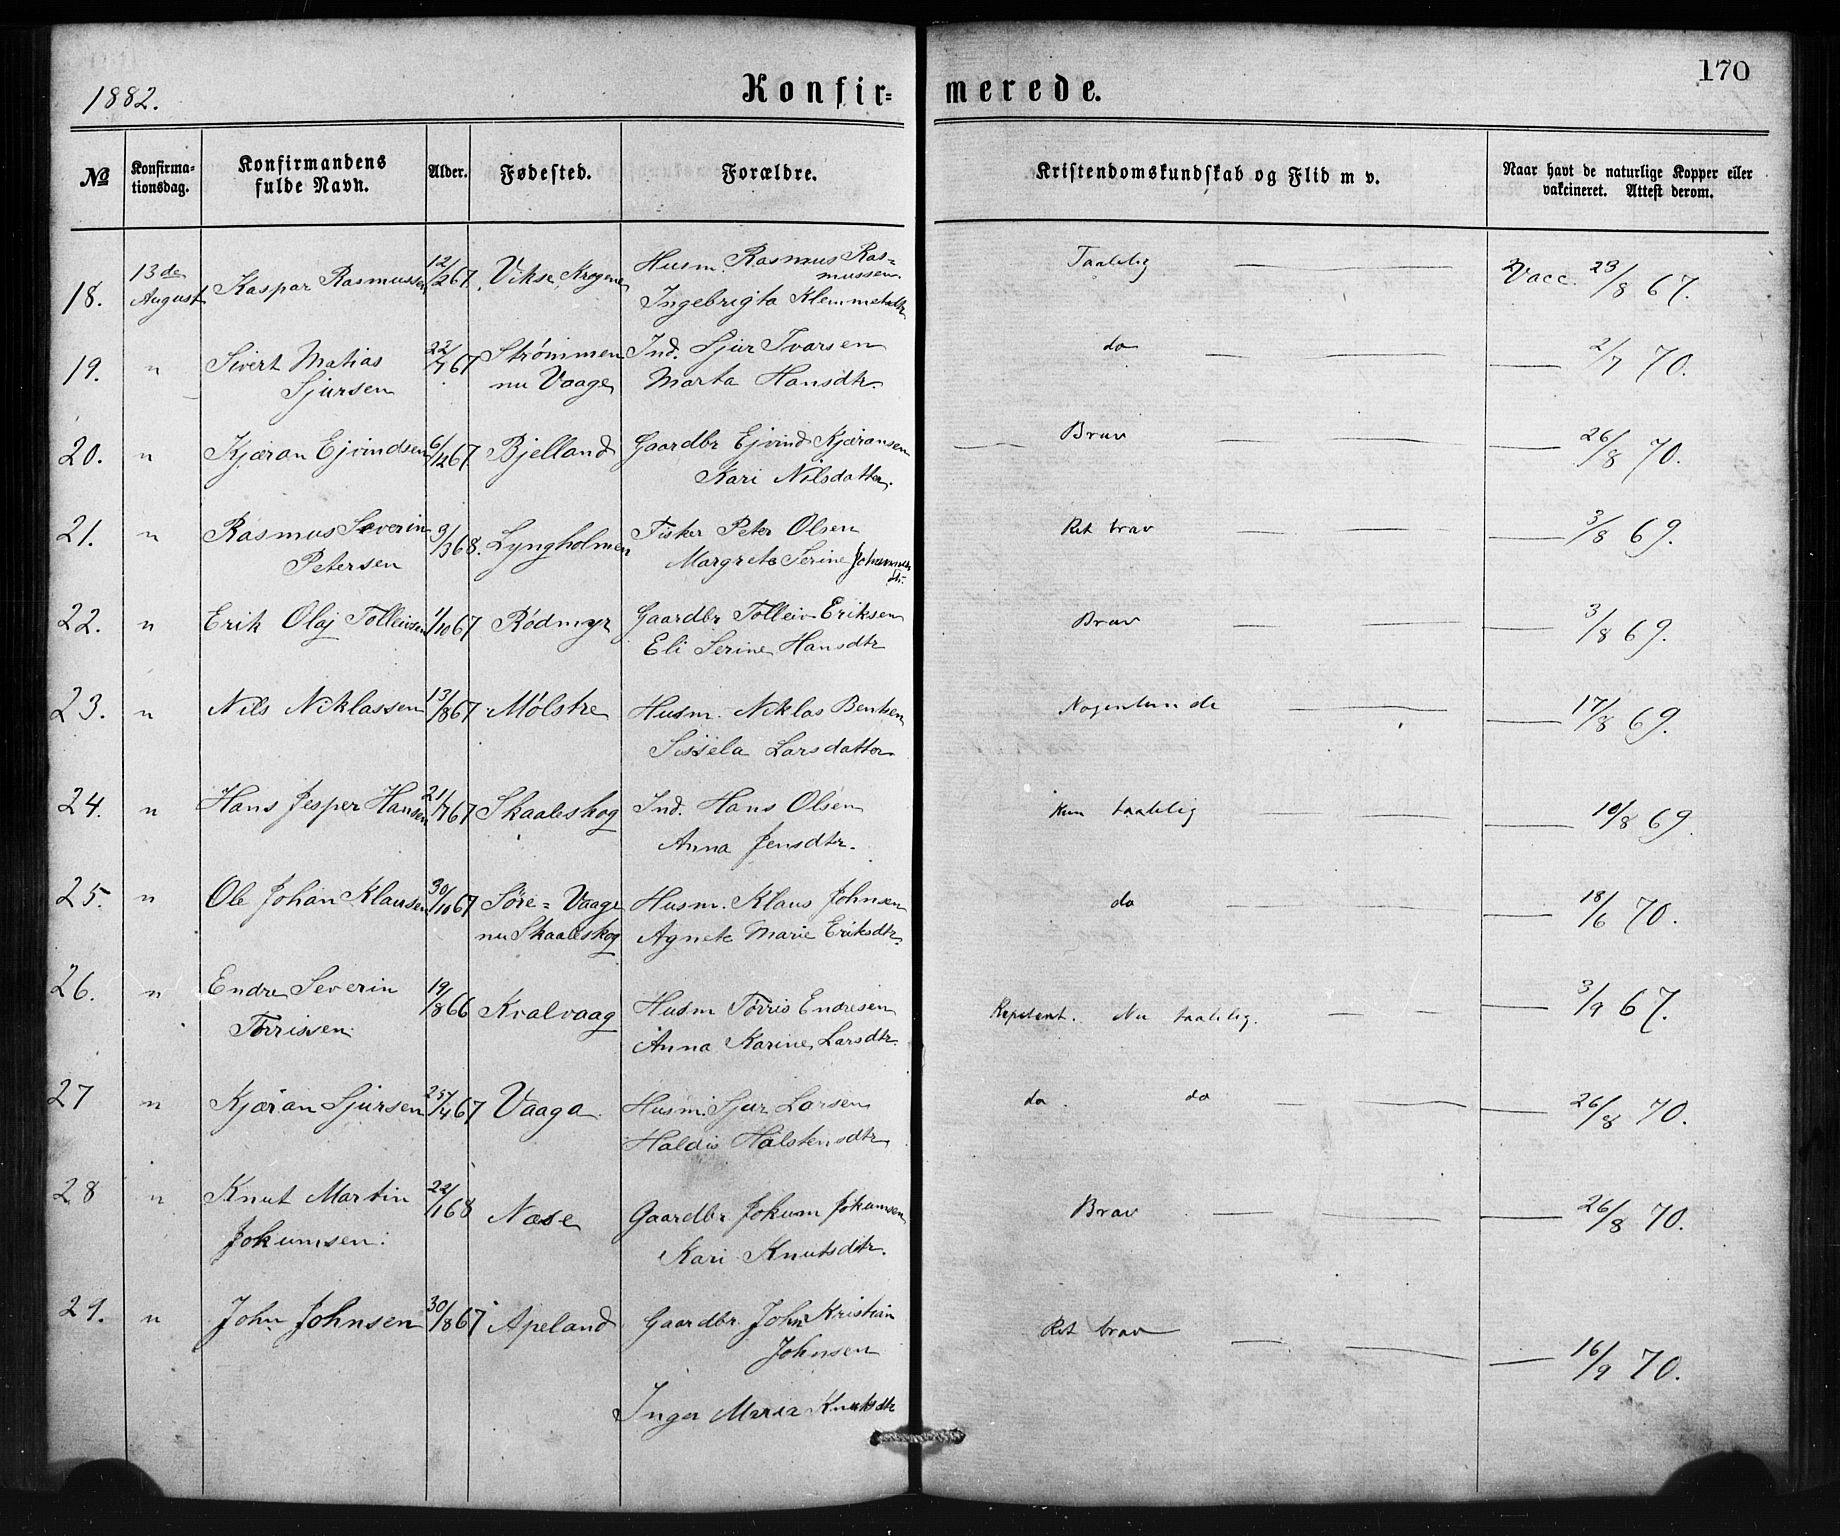 1882.
Konfir=merede.
170
No
Konfirmationsdag.
Konfirmandens fulde Navn.
Alder.
Fødested.
Forældre.
Kristendomskundskab og Flid m v.
Naar havt de naturlige Kopper eller vakcineret. Attest derom.
18. 13de August Kaspar Rasmussen 12/2 67. Vikse, Krogene Husm. Rasmus Ras=mussen Taalelig — — Vacc. 23/8 67.
Ingebrigta Klemmetsdtr
19. " Sivert Matias 22/7 67 Strømmen Ind. Sjur Ivarsen do — — — 2/7 70.
Sjursen nu Vaage Marta Hansdtr.
20. " Kjæran Ejvindsen 6/12 67 Bjelland Gaardbr Ejvind Kjæransen — Brav — — — 26/8 70.
Kari Nilsdatter.
21. " Rasmus Severin 3/3 68. Lyngholmen Fisker Peter Olsen Ret brav — — — 3/8 69.
Petersen Margrete Serine Johannesdtr.
22. " Erik Olaj Tolleivsen 1/10 67 Rødmyr Gaardbr Tolleiv Eriksen Brav — — — 3/8 69.
Eli Serine Hansdtr
23. " Nils Niklassen 13/8 67 Mølstre Husm. Niklas Bentsen Nogenlunde — — — 17/8 69.
Sissela Larsdatter
24. " Hans Jesper Hansen 21/7 67 Skaaleskog Ind. Hans Olsen Kun taalelig — — — 10/8 69.
Anna Jensdtr.
25. " Ole Johan Klausen 30/10 67 Søre=Vaage Husm. Klaus Johnsen do — — — 18/6 70.
nu Skaaleskog Agnete Marie Eriksdtr.
26. " Endre Severin 19/8 66 Kvalvaag Husm Tørris Endresen Repetent. Nu taalelig. — — — 3/9 67.
Tørrissen Anna Karine Larsdtr.
27 " Kjæran Sjursen 25/4 67 Vaaga Husm. Sjur Larsen do. do — — — 26/8 70.
Haldis Halstensdtr
28 " Knut Martin 22/1 68 Næse Gaardbr Jokum Jokumsen Brav — — — 26/8 70.
Jokumsen. Kari Knutsdtr.
29. " John Johnsen 30/8 67 Apeland Gaardbr. John Kristian Ret brav — — — 16/9 70.
Johnsen
Inger Maria Knutsdtr